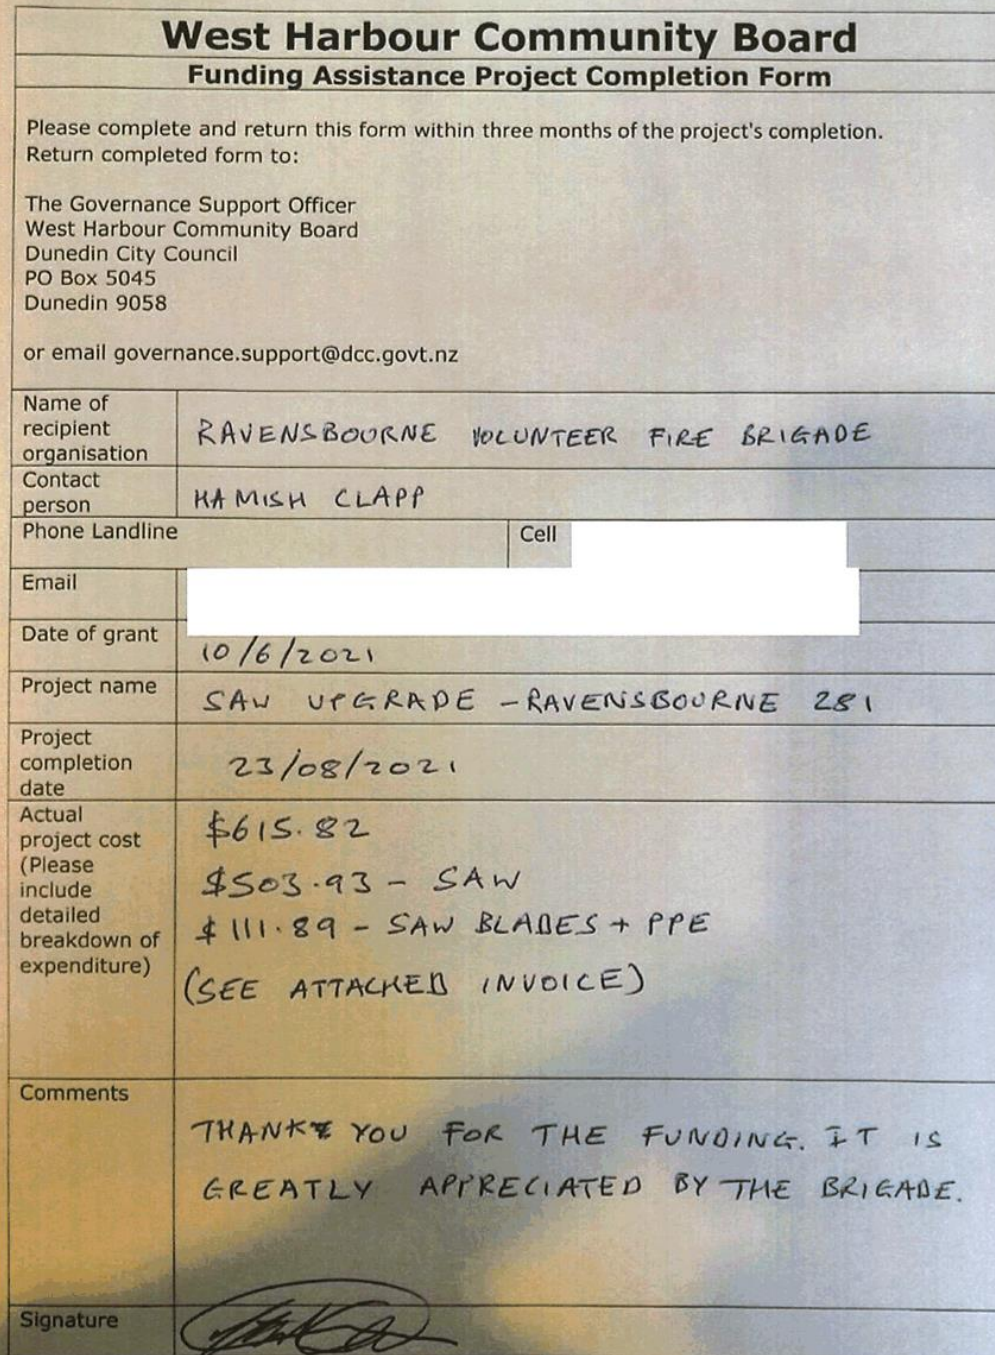 West Harbour Community Board
Funding Assistance Project Completion Form
Please complete and return this form within three months of the project's completion.
Return completed form to:
The Governance Support Officer
West Harbour Community Board
Dunedin City Council
PO Box 5045
Dunedin 9058
or email governance.support@dcc.govt.nz
Name of
recipient
organisation
RAVENSBOURNE VOLUNTEER FIRE BRIGADE
Contact
person
HAMISH CLAPP
Phone Landline
Cell
Email
Date of grant
10/6/2021
Project name
SAW UPGRADE - RAVENSBOURNE 281
Project
completion
date
23/08/2021
Actual
project cost
(Please
include
detailed
breakdown of
expenditure)
$615.82
$503.93 - SAW
$111.89 - SAW BLADES + PPE
(SEE ATTACHED INVOICE)
Comments
THANK YOU FOR THE FUNDING. IT IS
GREATLY APPRECIATED BY THE BRIGADE.
Signature